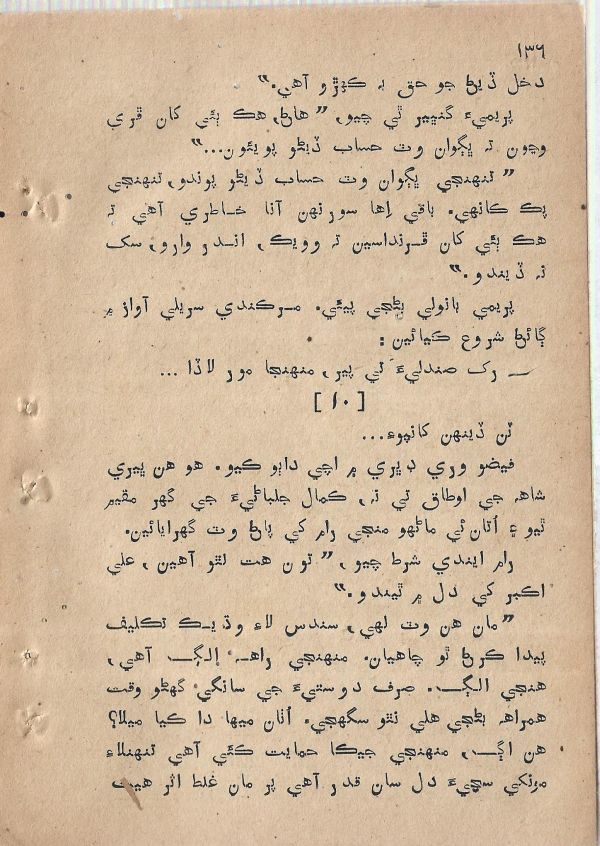 ۱۳۶
دخل ڏيڻ جو حق به ڪهڙو آهي.“
پريميءَ گنڀير ٿي چيو، ”هاڻ، هڪ ٻئي کان ڦري
وڃون ته ڀڳوان وٽ حساب ڏيڻو پويئون...“
”تنهنجي ڀڳوان وٽ حساب ڏيڻو پوندو، تنهنجي
پڪ ڪانهي. باقي اِها سورنهن آنا خاطري آهي ته
هڪ ٻئي کان ڦرنداسين ته وويڪ، اندر وارو، سک
نه ڏيندو.“
پريمي ٻانولي بڻجي پيئي. مرڪندي سريلي آواز ۾
ڳائڻ شروع ڪيائين :
— رک صندليءَ تي پير، منهنجا مور لاڏا ...
[ ۱۰ ]
ٽن ڏينهن کانپوءِ...
فيضو وري ديري ۾ اچي دابو ڪيو. هو هن ڀيري
شاهه جي اوطاق تي نه، ڪمال جلباڻيءَ جي گهر مقيم
ٿيو ۽ اُتان ئي ماڻهو منجي رام کي پاڻ وٽ گهرايائين.
رام ايندي شرط چيو، ”تون هت لٿو آهين، علي
اڪبر کي دل ۾ ٿيندو.“
”مان هن وٽ لهي، سندس لاءِ وڌيڪ تڪليف
پيدا ڪرڻ ٿو چاهيان. منهنجي راهه اِلڳ آهي،
هنجي الڳ. صرف دوستيءَ جي سانگي گهڻو وقت
همراهه بڻجي هلي نٿو سگهجي. اُتان ميها دا ڪيا ميلا؟
هن اڳ، منهنجي جيڪا حمايت ڪئي آهي تنهنلاءِ
مونکي سچيءَ دل سان قدر آهي پر مان غلط اثر هيٺ